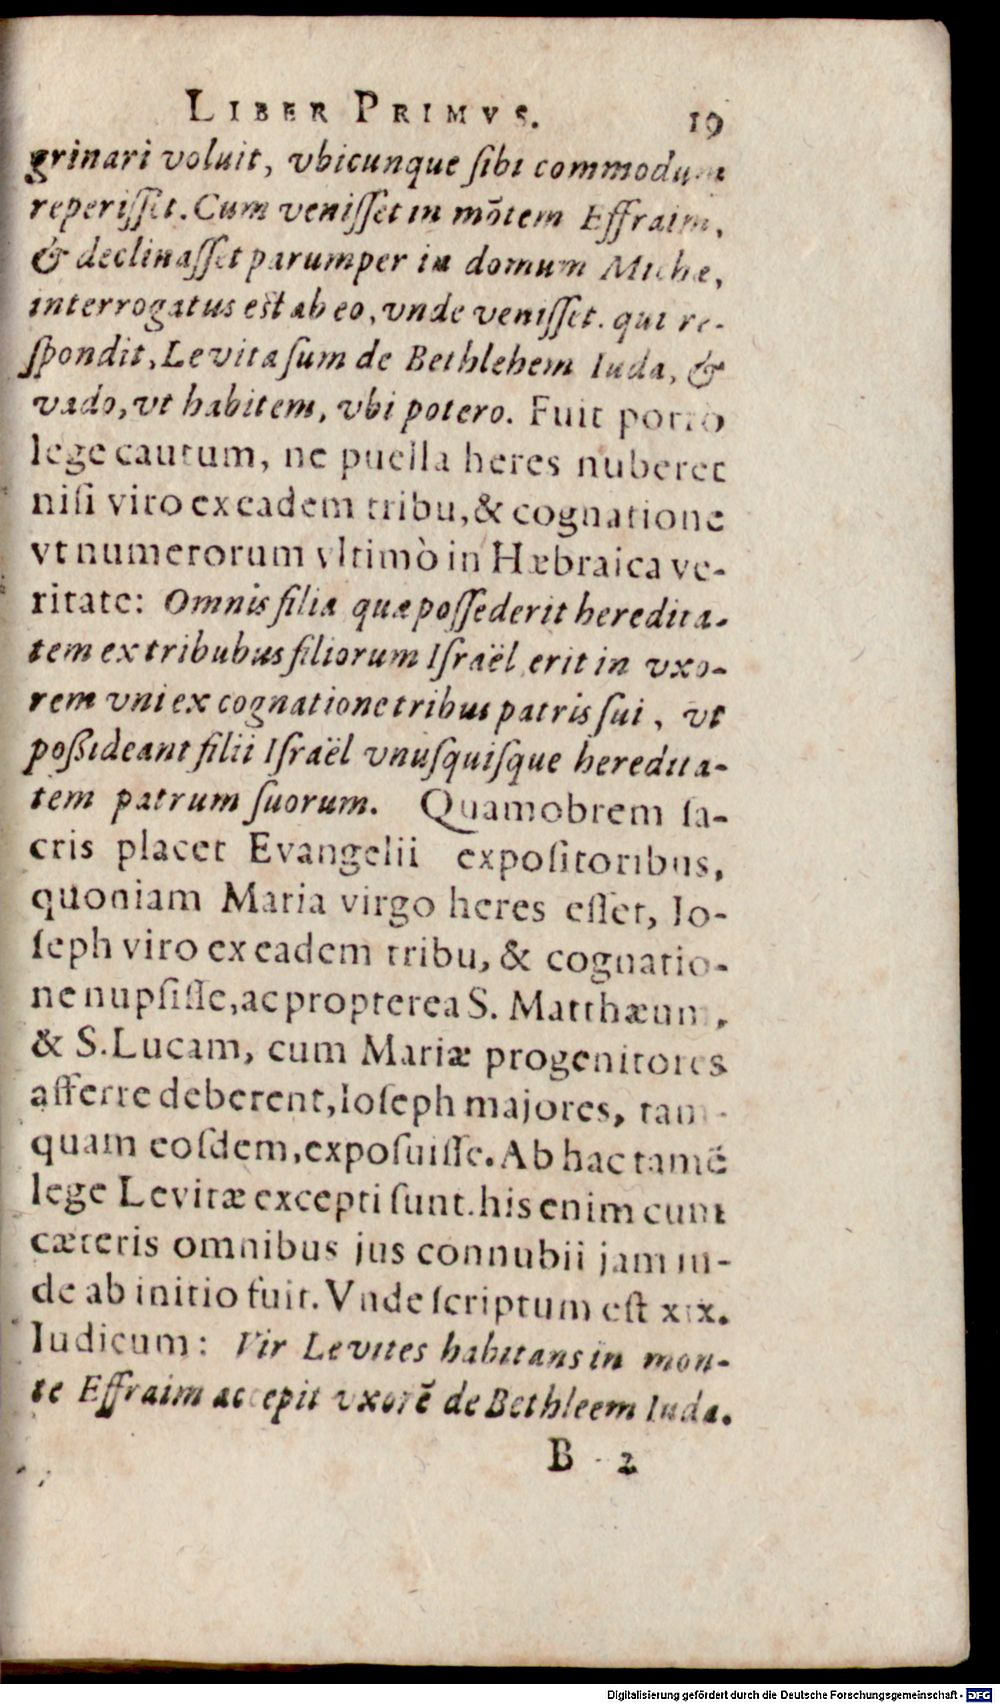 LIBER PRIMVS. 19
grinari voluit, vbicunque ſibi commodum
reperiſſet. Cum veniſſet in mōtem Effraim,
& declinaſſet parumper in domum Michæ,
interrogatus est ab eo, vnde veniſſet. qui re-
ſpondit, Levita ſum de Bethlehem Iuda, &
vado, vt habitem, vbi potero. Fuit porro
lege cautum, ne puella heres nuberet
niſi viro ex eadem tribu, & cognatione
vt numerorum vltimò in Hæbraica ve-
ritate: Omnis filia quæ poſſederit heredita-
tem ex tribubus filiorum Iſraël erit in vxo-
rem vni ex cognatione tribus patris ſui, vt
poßideant filii Iſraël vnuſquiſque heredita-
tem patrum ſuorum. Quamobrem ſa-
cris placet Evangelii expoſitoribus,
quoniam Maria virgo heres eſſet, Io-
ſeph viro ex eadem tribu, & cognatio-
ne nupſiſſe, ac propterea S. Matthæum,
& S. Lucam, cum Mariæ progenitores
afferre deberent, Ioſeph majores, tam-
quam eoſdem, expoſuiſſe. Ab hac tamē
lege Levitæ excepti ſunt. his enim cum
cæteris omnibus jus connubii jam in-
de ab initio fuit. Vnde ſcriptum eſt xix.
Iudicum: Vir Levites habitans in mon-
te Effraim accepit vxorē de Bethleem Iuda.
B 2
Digitalisierung gefördert durch die Deutsche Forschungsgemeinschaft - DFG